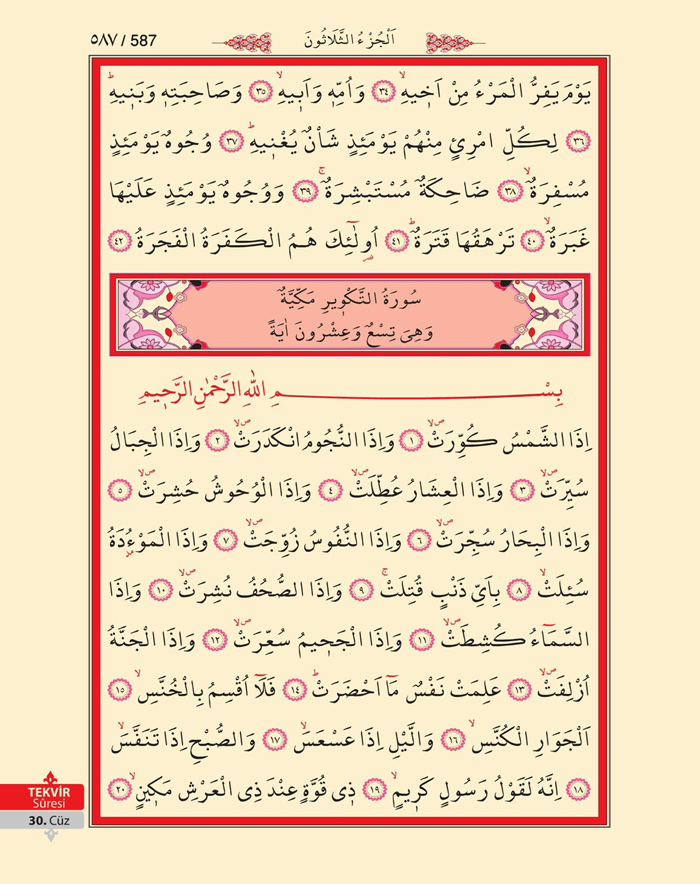 ٥٨٧ / 587
اَلْجُزْءُ الثَّلَاثُونَ
يَوْمَ يَفِرُّ الْمَرْءُ مِنْ اَخ۪يهِۙ ﴿٣٤﴾ وَاُمِّه۪ وَاَب۪يهِۙ ﴿٣٥﴾ وَصَاحِبَتِه۪ وَبَن۪يهِۜ
﴿٣٦﴾ لِكُلِّ امْرِئٍ مِنْهُمْ يَوْمَئِذٍ شَأْنٌ يُغْن۪يهِۜ ﴿٣٧﴾ وُجُوهٌ يَوْمَئِذٍ
مُسْفِرَةٌۙ ﴿٣٨﴾ ضَاحِكَةٌ مُسْتَبْشِرَةٌۚ ﴿٣٩﴾ وَوُجُوهٌ يَوْمَئِذٍ عَلَيْهَا
غَبَرَةٌۙ ﴿٤٠﴾ تَرْهَقُهَا قَتَرَةٌۜ ﴿٤١﴾ اُو۬لٰٓئِكَ هُمُ الْكَفَرَةُ الْفَجَرَةُ ﴿٤٢﴾
سُورَةُ التَّكْو۪يرِ مَكِّيَّةٌ
وَهِيَ تِسْعٌ وَعِشْرُونَ اٰيَةً
بِسْمِ اللّٰهِ الرَّحْمٰنِ الرَّح۪يمِ
اِذَا الشَّمْسُ كُوِّرَتْۙۖ ﴿١﴾ وَاِذَا النُّجُومُ انْكَدَرَتْۙۖ ﴿٢﴾ وَاِذَا الْجِبَالُ
سُيِّرَتْۙۖ ﴿٣﴾ وَاِذَا الْعِشَارُ عُطِّلَتْۙۖ ﴿٤﴾ وَاِذَا الْوُحُوشُ حُشِرَتْۙۖ ﴿٥﴾
وَاِذَا الْبِحَارُ سُجِّرَتْۙۖ ﴿٦﴾ وَاِذَا النُّفُوسُ زُوِّجَتْۙۖ ﴿٧﴾ وَاِذَا الْمَوْءُ۫دَةُ
سُئِلَتْۙ ﴿٨﴾ بِاَيِّ ذَنْبٍ قُتِلَتْۚ ﴿٩﴾ وَاِذَا الصُّحُفُ نُشِرَتْۙۖ ﴿١٠﴾ وَاِذَا
السَّمَٓاءُ كُشِطَتْۙۖ ﴿١١﴾ وَاِذَا الْجَح۪يمُ سُعِّرَتْۙۖ ﴿١٢﴾ وَاِذَا الْجَنَّةُ
اُزْلِفَتْۙۖ ﴿١٣﴾ عَلِمَتْ نَفْسٌ مَٓا اَحْضَرَتْۜ ﴿١٤﴾ فَلَٓا اُقْسِمُ بِالْخُنَّسِۙ ﴿١٥﴾
اَلْجَوَارِ الْكُنَّسِۙ ﴿١٦﴾ وَالَّيْلِ اِذَا عَسْعَسَۙ ﴿١٧﴾ وَالصُّبْحِ اِذَا تَنَفَّسَۙ
﴿١٨﴾ اِنَّهُ لَقَوْلُ رَسُولٍ كَر۪يمٍۙ ﴿١٩﴾ ذ۪ي قُوَّةٍ عِنْدَ ذِي الْعَرْشِ مَك۪ينٍۙ ﴿٢٠﴾
TEKVİR
Sûresi
30. Cüz